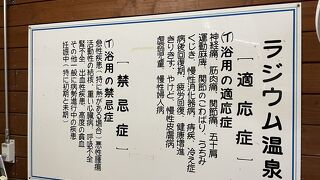 ラジウム温泉
〔適応症〕
(イ)浴用の適応症
神経痛、筋肉痛、関節痛、五十肩
運動麻痺、関節のこわばり、うちみ
くじき、慢性消化器病、痔疾、冷え症
病後回復期、疲労回復、健康増進
きりきず、やけど、慢性皮膚病
虚弱児童、慢性婦人病
〔禁忌症〕
(イ)浴用の禁忌症
急性疾患(特に熱がある場合)悪性腫瘍
活動性の結核、重い心臓病、呼吸不全
腎不全、出血性疾患、高度の貧血
その他一般に病勢進行中の疾患
妊娠中(特に初期と末期)